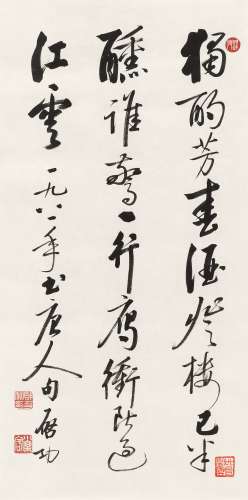 独酌芳春酒登楼已半
醺谁惊一行雁冲断过
江云一九八一年书唐人句启功